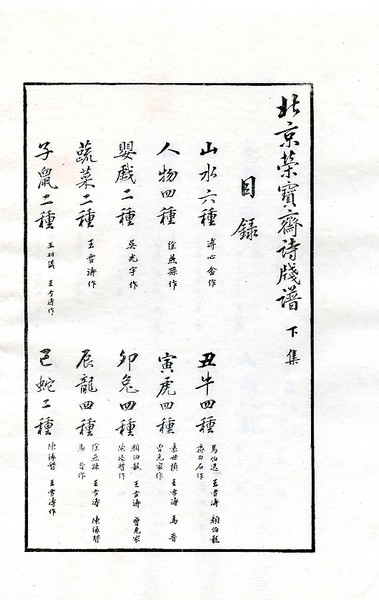 北京荣寶齋詩牋譜 下集
目錄
山水六種 溥心畬作
人物四種 徐燕孫作
嬰戲二種 吳光宇作
蔬菜二種 王雪濤作
子鼠二種 王羽儀 王雪濤作
丑牛四種 馬伯逸 王雪濤 顏伯龍
齊白石作
寅虎四種 袁世 王雪濤 馬晋
曹克家作
卯兔四種 顏伯龍 王雪濤 曹克家
陳緣督作
辰龍四種 徐燕孫 王雪濤 陳緣督
馬晋作
巳蛇二種 陳緣督 王雪濤作